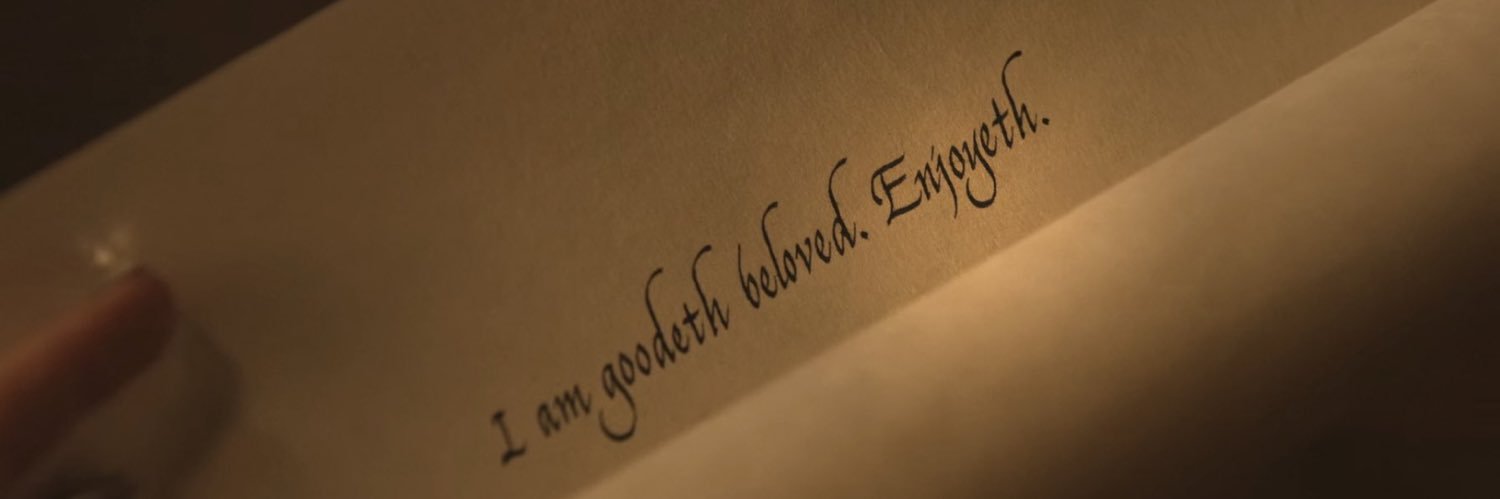 I am goodeth beloved. Enjoyeth.